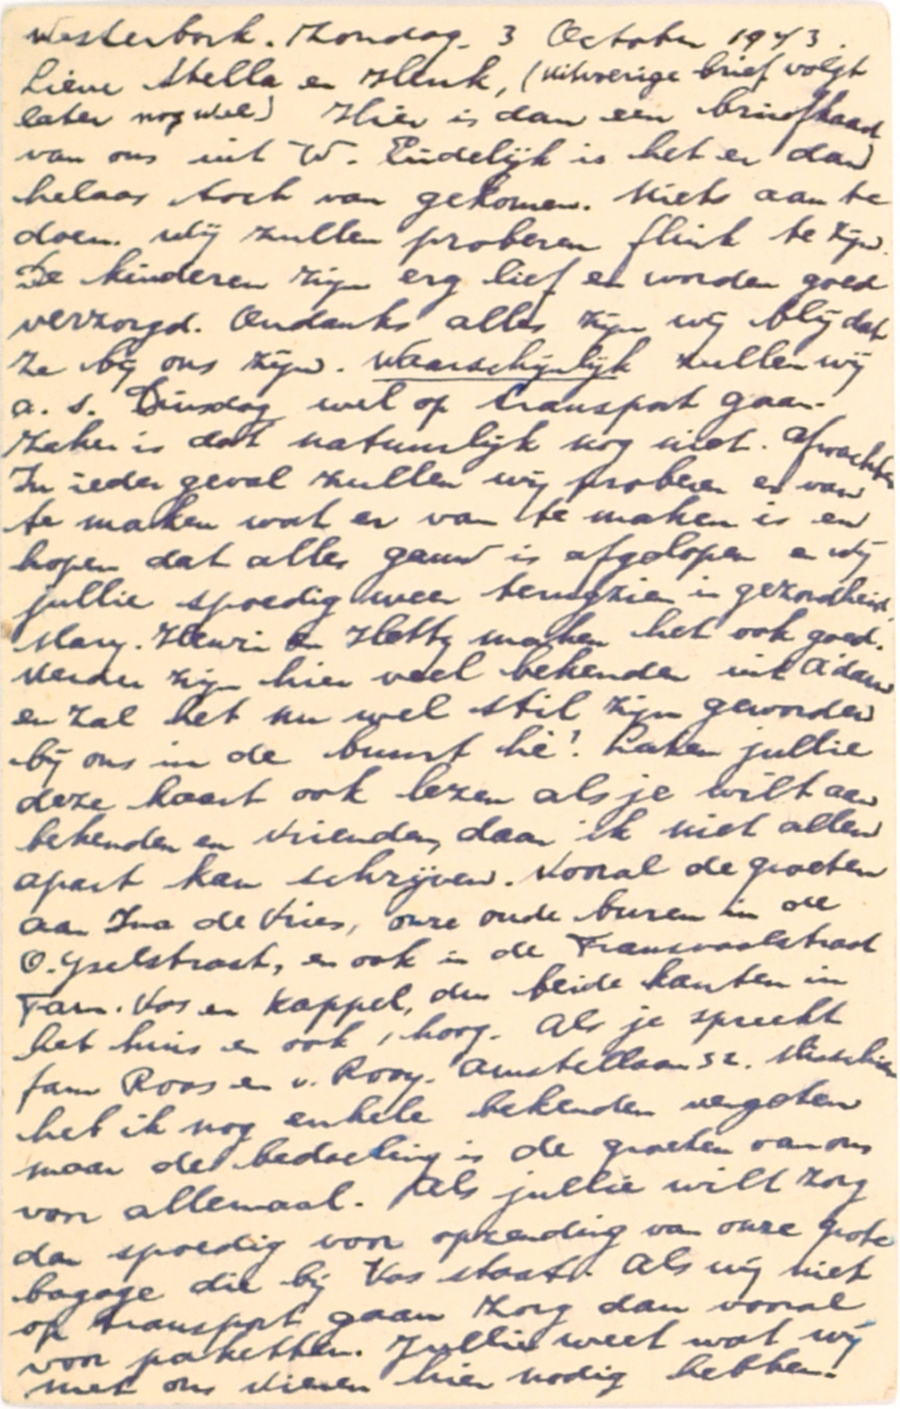 Westerbork. Zondag. 3 October 1943.
Lieve Stella en Henk, (uitvoerige brief volgt
later nog wel) Hier is dan een briefkaart
van ons uit W. Eindelijk is het er dan
helaas toch van gekomen. Niets aan te
doen. Wij zullen proberen flink te zijn.
De kinderen zijn erg lief en worden goed
verzorgd. Ondanks alles zijn wij blij dat
ze bij ons zijn. Waarschijnlijk zullen wij
a. s. Dinsdag wel op transport gaan.
Zeker is dat natuurlijk nog niet. Afwachten
In ieder geval zullen wij proberen er van
te maken wat er van te maken is en
hopen dat alles gauw is afgelopen en wij
jullie spoedig weer terugzien in gezondheid.
Mary. Henri en Hetty maken het ook goed.
Verder zijn hier veel bekenden uit A'dam
en zal het nu wel stil zijn geworden
bij ons in de buurt hè! Laten jullie
deze kaart ook lezen als je wilt aan
bekenden en vrienden, daar ik niet allen
apart kan schrijven. Vooral de groeten
aan Ina de Vries, onze oude buren in de
O. Yselstraat, en ook in de Transvaalstraat
Fam. Vos en Kappel, den beide kanten in
het huis en ook 1 hoog. Als je spreekt
fam Roos en v. Rooy. Amstellaan 52. Misschien
heb ik nog enkele bekenden vergeten
maar de bedoeling is de groeten van ons
voor allemaal. Als jullie wilt zorg
dan spoedig voor opzending van onze grote
bagage die bij Vos staat. Als wij niet
op transport gaan zorg dan vooral
voor paketten. Jullie weet wat wij
met ons vieren hier nodig hebben!